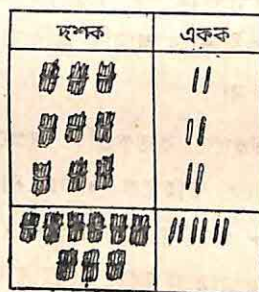 দশক একক